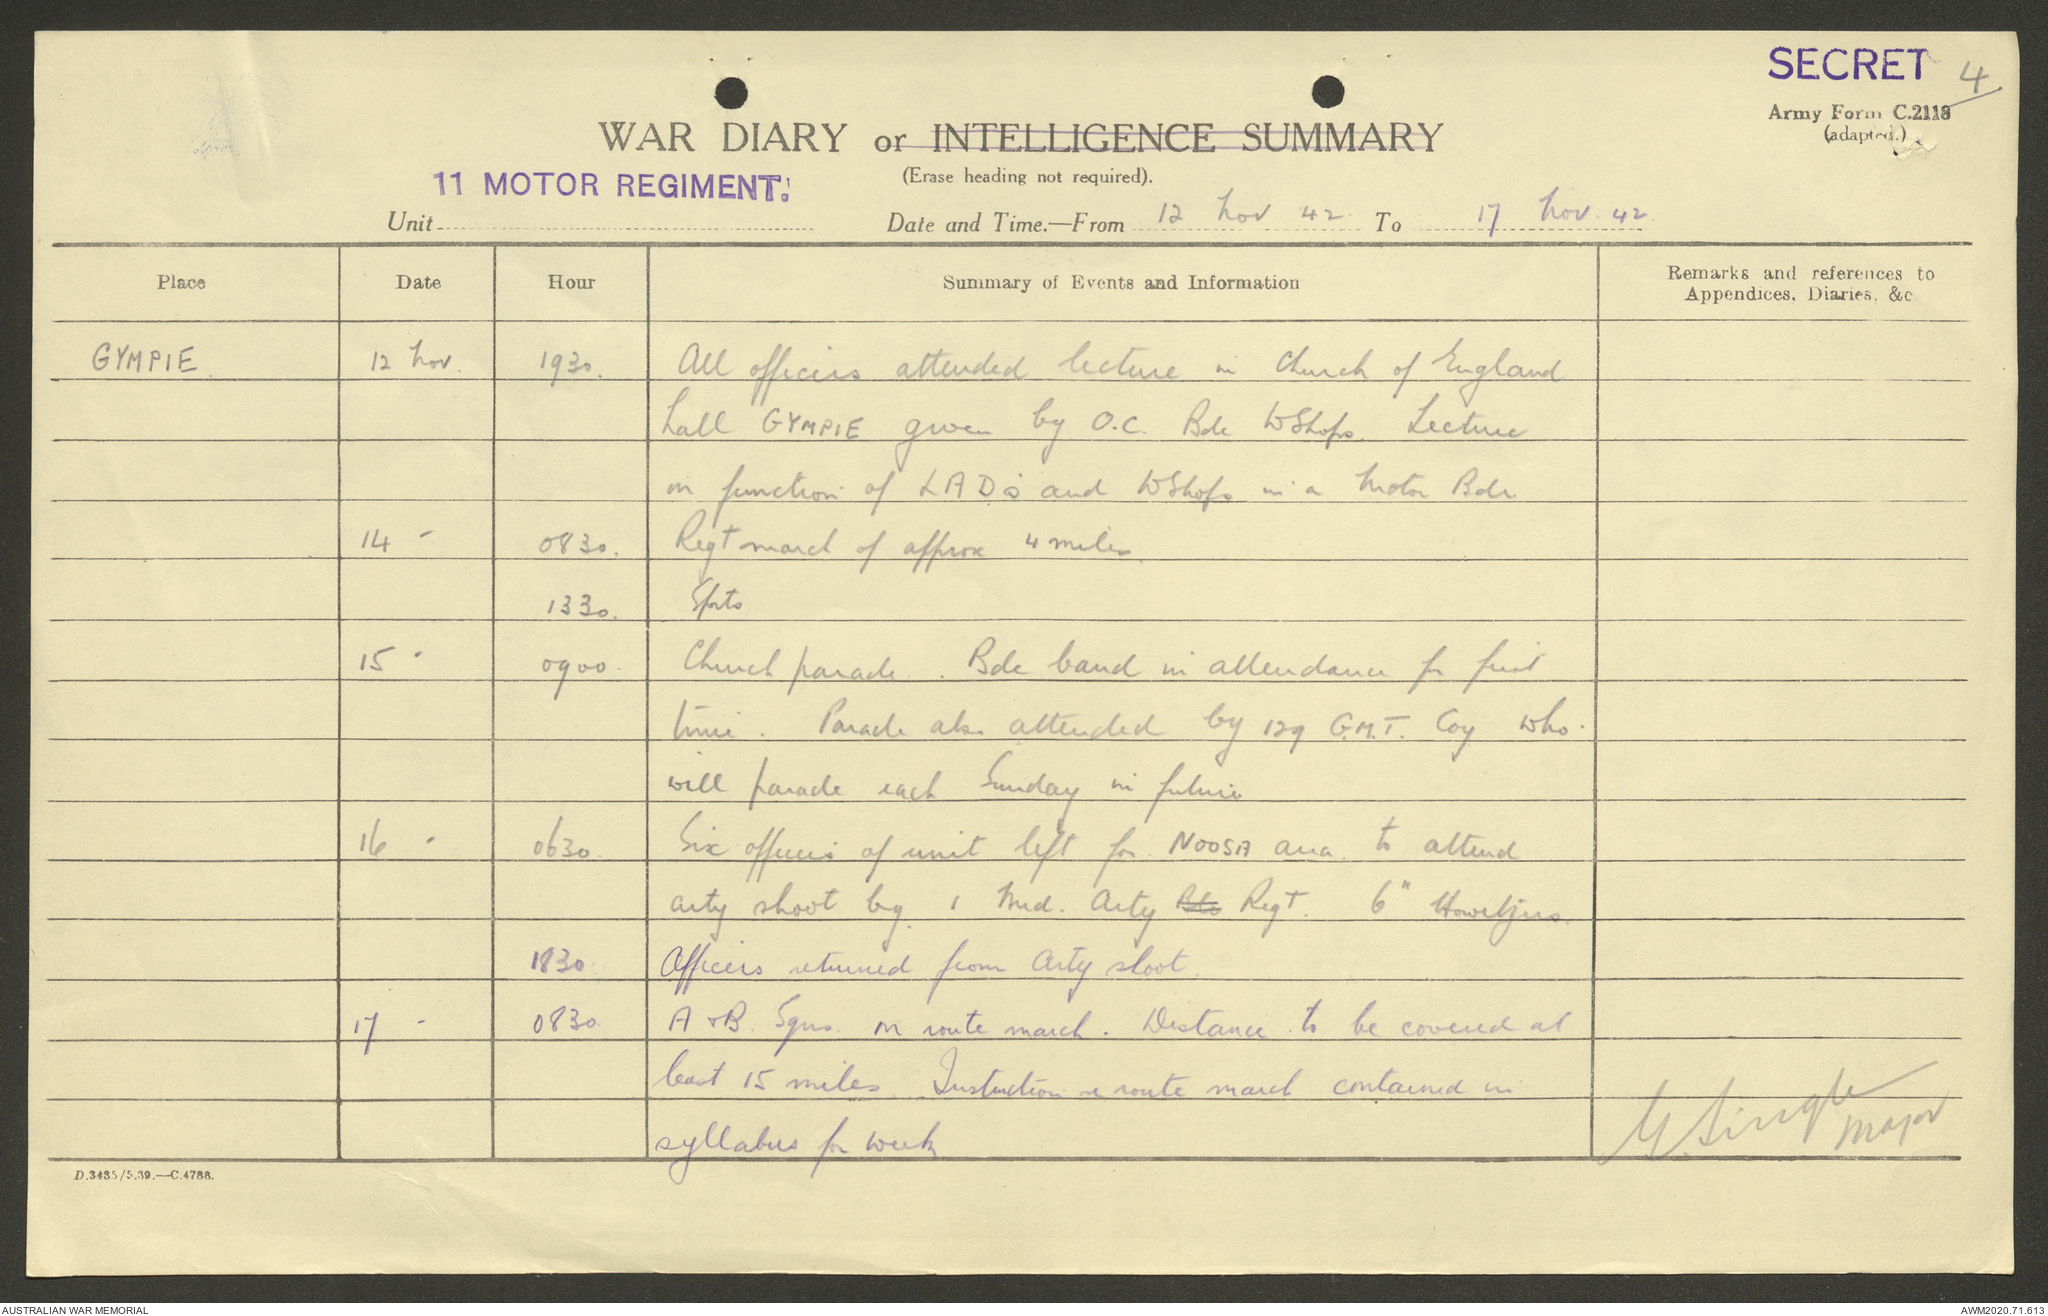 SECRET 4
Army Form C.2118
(adapted.)
WAR DIARY or INTELLIGENCE SUMMARY
(Erase heading not required).
11 MOTOR REGIMENT.
Unit Date and Time.—From 12 Nov 42 To 17 Nov. 42
Place Date Hour Summary of Events and Information Remarks and references to
Appendices, Diaries, &c
GYMPIE 12 Nov. 1930. All officers attended lecture in Church of England
hall GYMPIE given by O.C. Bde WShops. Lecture
on function of LAD's and WShops in a Motor Bde.
14 " 0830. Regt march of approx 4 miles
1330. Sports
15 " 0900. Church parade. Bde band in attendance for first
time. Parade also attended by 129 G.M.T. Coy who
will parade each Sunday in future
16 " 0630. Six officers of unit left for NOOSA area to attend
arty shoot by 1 Med. Arty Regt. 6" Howitzers.
1830 Officers returned from arty shoot.
17 " 0830. A & B. Sqns. on route march. Distance to be covered at
least 15 miles. Instruction re route march contained in
syllabus for week
Major
D.3485/5.39.—C.4788.
AUSTRALIAN WAR MEMORIAL AWM2020.71.613